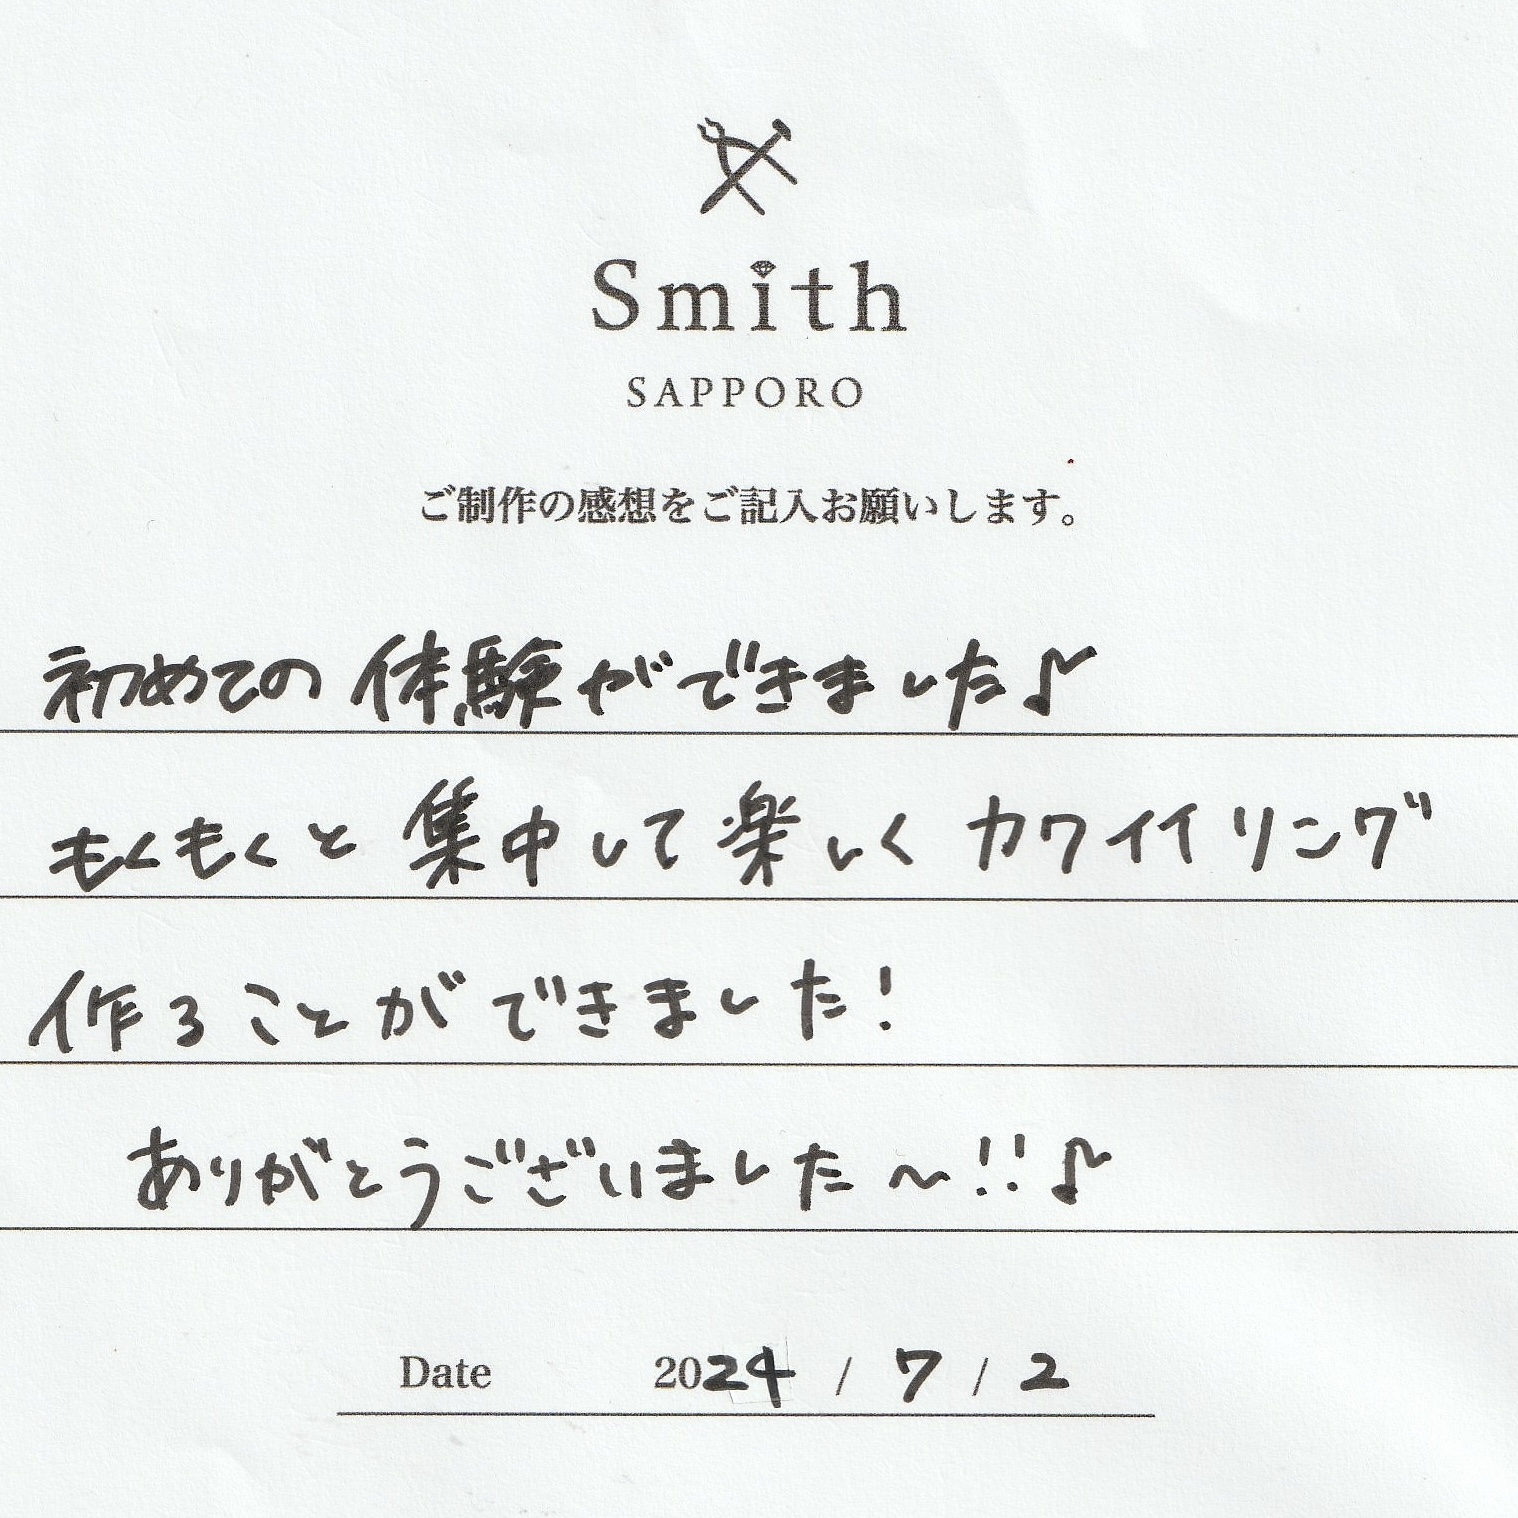 Smith
SAPPORO
ご制作の感想をご記入お願いします。
初めての体験ができました♪
もくもくと集中して楽しくカワイイリング
作ることができました!
ありがとうございました～!!♪
Date 2024 / 7 / 2